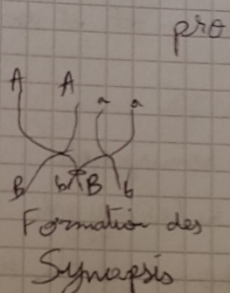 pro
A A a a
B b B b
Formation des
Synapsis